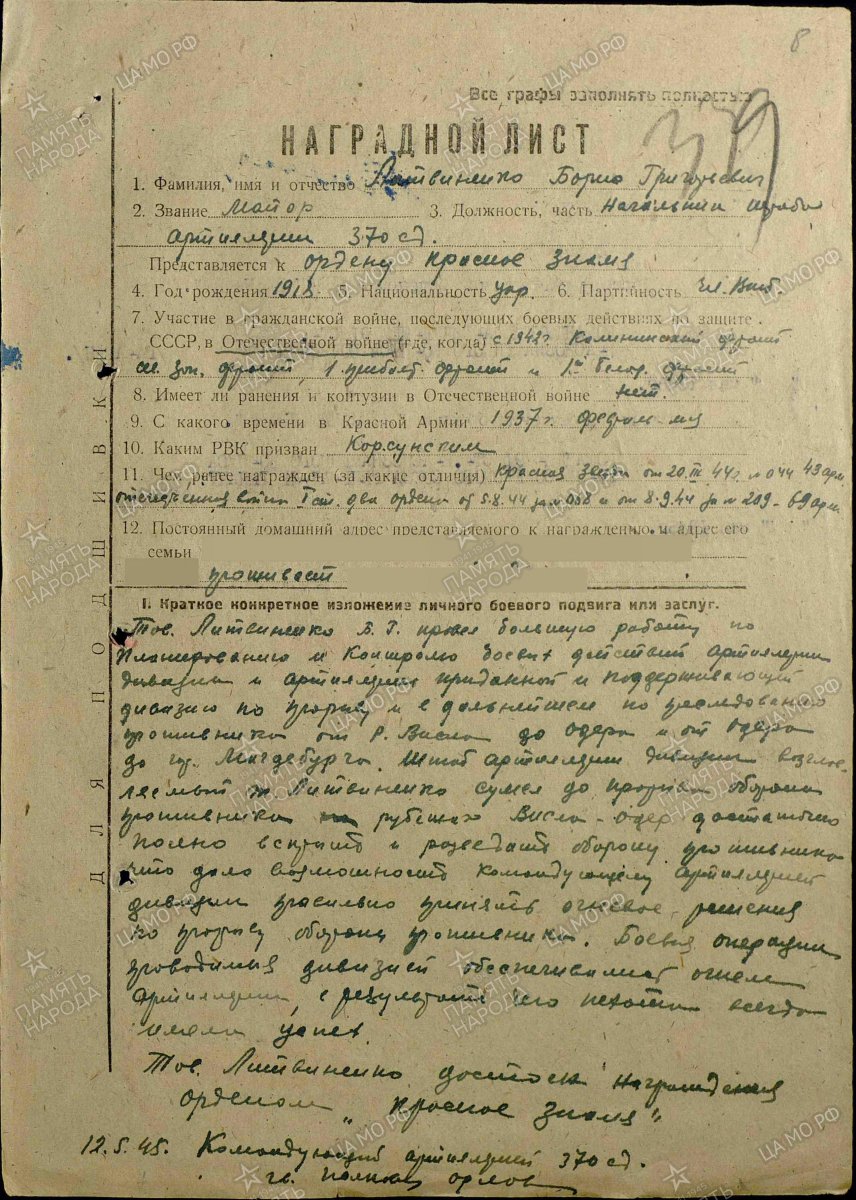 8
39
Все графы заполнять полностью
НАГРАДНОЙ ЛИСТ
1. Фамилия, имя и отчество Литвиненко Борис Григорьевич
2. Звание Майор 3. Должность, часть Начальник штаба
артиллерии 370 сд.
Представляется к ордену Красное Знамя
4. Год рождения 1918 5. Национальность укр. 6. Партийность чл. ВКПб.
7. Участие в гражданской войне, последующих боевых действиях по защите
СССР, в Отечественной войне (где, когда) с 1942 г Калининский фронт
сев. зап. фронт, 1 прибалт. фронт и 1й белор. фронт
8. Имеет ли ранения и контузии в Отечественной войне нет.
9. С какого времени в Красной Армии 1937 г.
10. Каким РВК призван Корсунским
11. Чем ранее награжден (за какие отличия) Красная Звезда от 20.III.44 г. № 044 43 арм.
отечественная война Iст. два ордена от 5.8.44 за № 058 и от 8.9.44 за № 209 - 69 арм
12. Постоянный домашний адрес представляемого к награждению и адрес его
семьи
проживает
I. Краткое конкретное изложение личного боевого подвига или заслуг.
Тов. Литвиненко Б. Г. провел большую работу по
планированию и контролю боевых действий артиллерии
дивизии и артиллерии приданной и поддерживающей
дивизию по прорыву и в дальнейшем по преследованию
противника от р. Висла до Одера и от Одера
до гор. Магдебурга. Штаб артиллерии дивизии возглав-
ляемый Литвиненко сумел до прорыва обороны
противника рубежа Висла - Одер достаточно
полно вскрыть и разведать оборону противника
что дало возможность командующему артиллерией
дивизии правильно принять огневое решения
по прорыву обороны противника. Боевые операции
проводимые дивизией обеспечивались огнем
артиллерии, в результате чего пехота всегда
имели успех.
Тов. Литвиненко достоен награждения
орденом „Красное Знамя"
12.5.45. Командующий артиллерией 370 сд.
гв. полковник Орлов
ДЛЯ ПОДШИВКИ
ПАМЯТЬ НАРОДА
ЦАМО.РФ